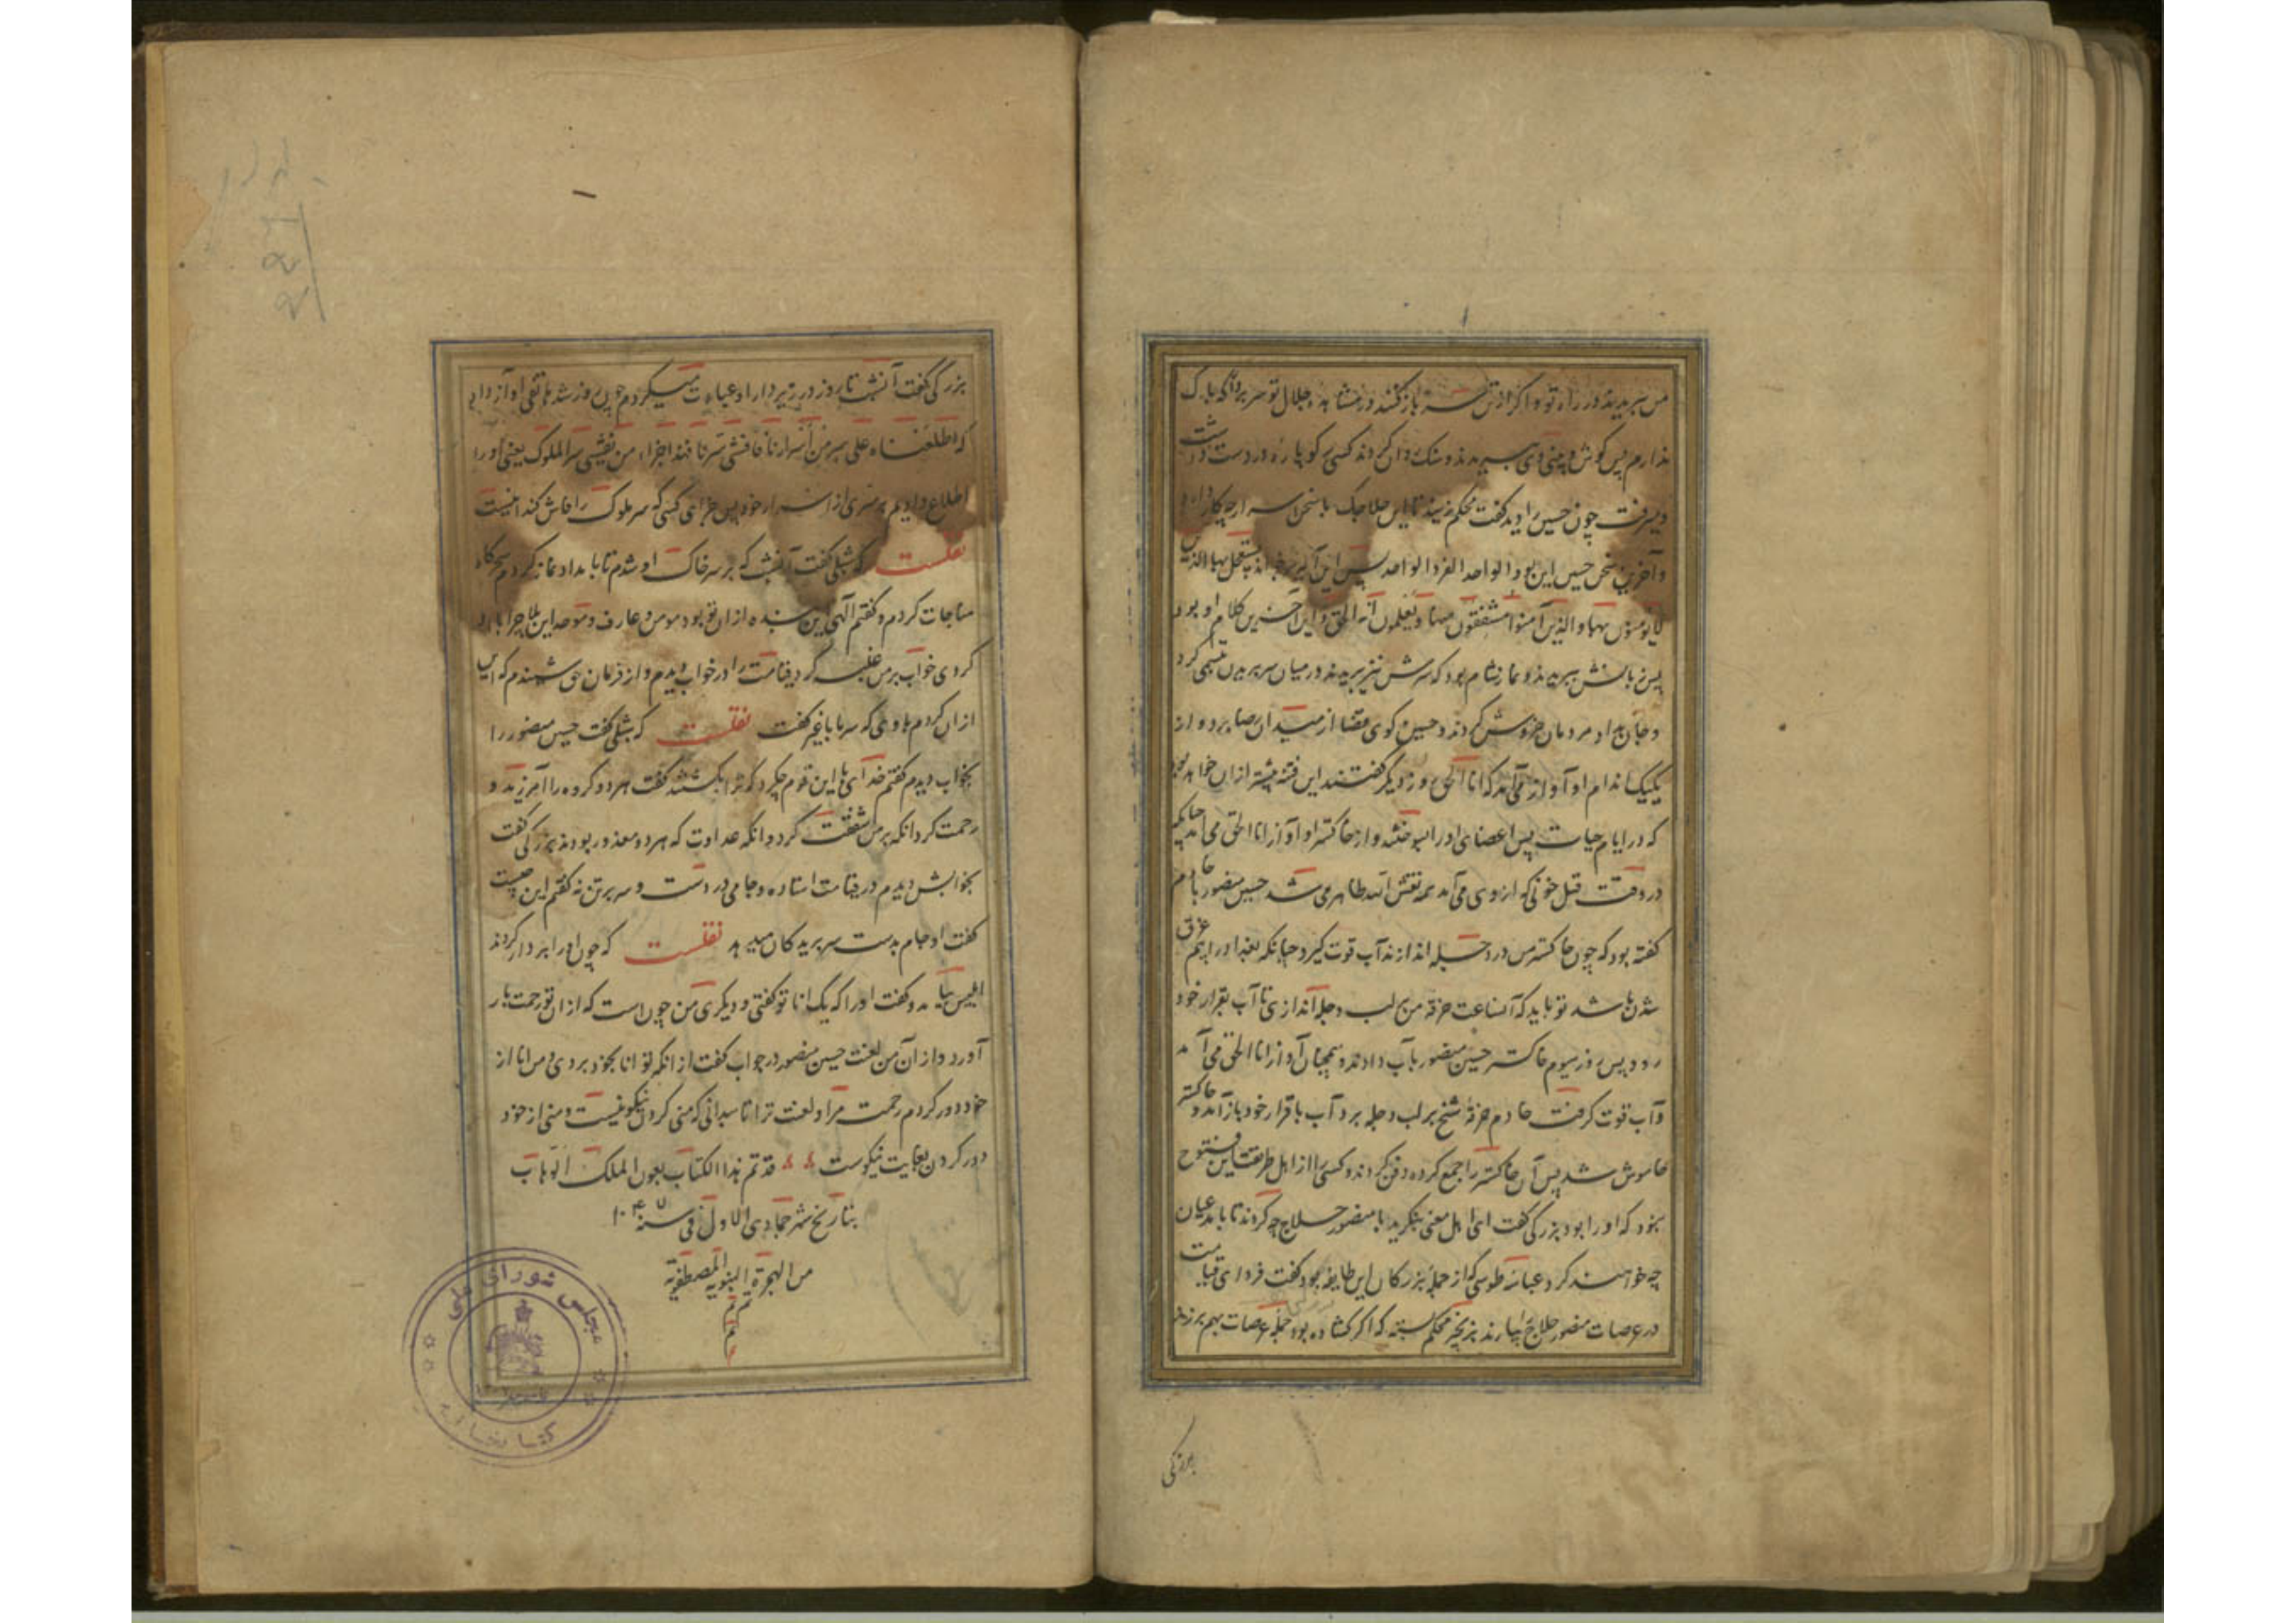 من ببریدند در راه تو و اگر از تن سرم باز کنند در مشاهده جلال تو سر بردارم که باک
ندارم پس گوش و بینی وی ببریدند و سنک روان کردند کسی کوپاره در دست داشت
میرفت چون حسین را دید کفت محکم زنید تا این حلاجک با سخن اسرار چه کار دارد
و آخرین سخن حسین این بود الواحد افراد الواحد پس این آیه برخواند یستعجل بها الذین
لایومنون بها و الذین آمنوا مشفقون منها و یعلمون انه الحق و این آخرین کلام او بود
پس زبانش ببریدند و نماز شام بود که سرش نیز ببریدند در میان سر بریدن تبسمی کرد
و جان بداد مردمان خروش کردند و حسین کوی قضا از میدان رضا برد و از
یکیک اندام او آواز می‌آمد که اناالحق روز دیگر کفتند این فتنه بیشتر ازان خواهد بود
که در ایام حیات پس اعضای او را بسوختند و از خاکستر او آواز اناالحق می‌آمد چنانکه
در وقت قتل خونی که از وی می‌آمد همه نقش الله ظاهر می شد حسین منصور با خادم
کفته بود که چون خاکستر من در دجله اندازند آب قوت کیرد چنانکه بغداد را بیم غرق
شدن باشد تو باید که آنساعت خرقه من بر لب دجله اندازی تا آب بقرار خود
رود پس روز سیوم خاکستر حسین منصور بآب دادند و همچنان آواز اناالحق می آمد
و آب قوت کرفت خادم خرقهٔ شیخ بر لب دجله برد آب باقرار خود باز آمد و خاکستر
خاموش شد پس آن خاکستر را جمع کرده دفن کردند و کسی را از اهل طریقت این فتوح
نبود که او را بود بزرکی کفت ای اهل معنی بنکرید با منصور حلاج چه کردند تا با مدعیان
چه خواهند کرد عباسه طوسی که از جمله بزرکان این طایفه بود کفت فردای قیامت
در عرصات منصور حلاج بیارند بزنجیر محکم بسته که اکر کشاده بود جمله عرصات بهم برزند
بزرکی
بزرکی گفت آنشب تا روز در زیر دار او عبادت میکردم چون روز شد هاتفی آواز داد
که اطلعناه علی سر من اسرارنا فافشی سرنا فهذا جزاء من یفشی سر الملوک یعنی او را
اطلاع دادیم بر سری از اسرار خود پس جزای کسی که سر ملوک را فاش کند اینست
نقلست که شبلی کفت آنشب که بر سر خاک او شدم تا بامداد نماز کردم سحرگاه
مناجات کردم و کفتم الهی این بنده ازان تو بود مومن و عارف و موحد این بلا چرا با او
کردی خواب بر من غلبه کرد قیامت را در خواب دیدم و از فرمان حق شنیدم که این
ازان کردم با وی که سر ما با غیر کفت نقلست که شبلی کفت حسین منصور را
بخواب دیدم کفتم خدای با این قوم چکرد که ترا بکشتند کفت هر دو کروه را آمرزید و
رحمت کرد انکه بر من شفقت کرد و انکه عداوت که هر دو معذور بودند بزرکی کفت
بخوابش دیدم در قیامت استاده و جامی در دست و سر بر تن نه کفتم این چیست
کفت او جام بدست سر بریدکان میدهد نقلست که چون او را بردار کردند
ابلیس بیامد و کفت او را که یک انا تو کفتی و دیکری من چون است که ازان تو رحمت بار
آورد و از آن من لعنت حسین منصور در جواب کفت از انکه تو انا بخود بردی و من انا از
خود دور کردم رحمت مرا و لعنت ترا تا بدانی که منی کردن نیکو نیست و منی از خود
دور کردن بغایت نیکوست قد تم هذا الکتاب بعون الملک الوهاب
بتاریخ شهر جمادی الاول فی سنه ۱۰۴۷
من الهجرة النبویه المصطفویة
تم تم
تم
مجلس شورای ملی
کتابخانه